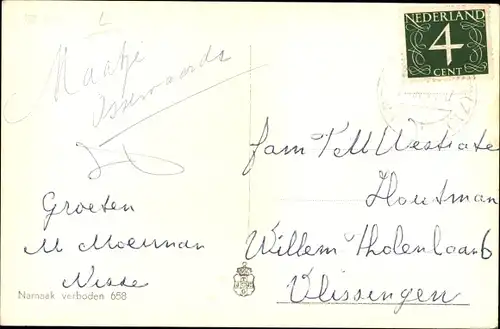 NEDERLAND
4
CENT
Maatje
Groeten
M Moerman
Nisse
Namaak verboden 658
fam I M Westrate
Houtman
Willem Tholenlaan 6
Vlissingen